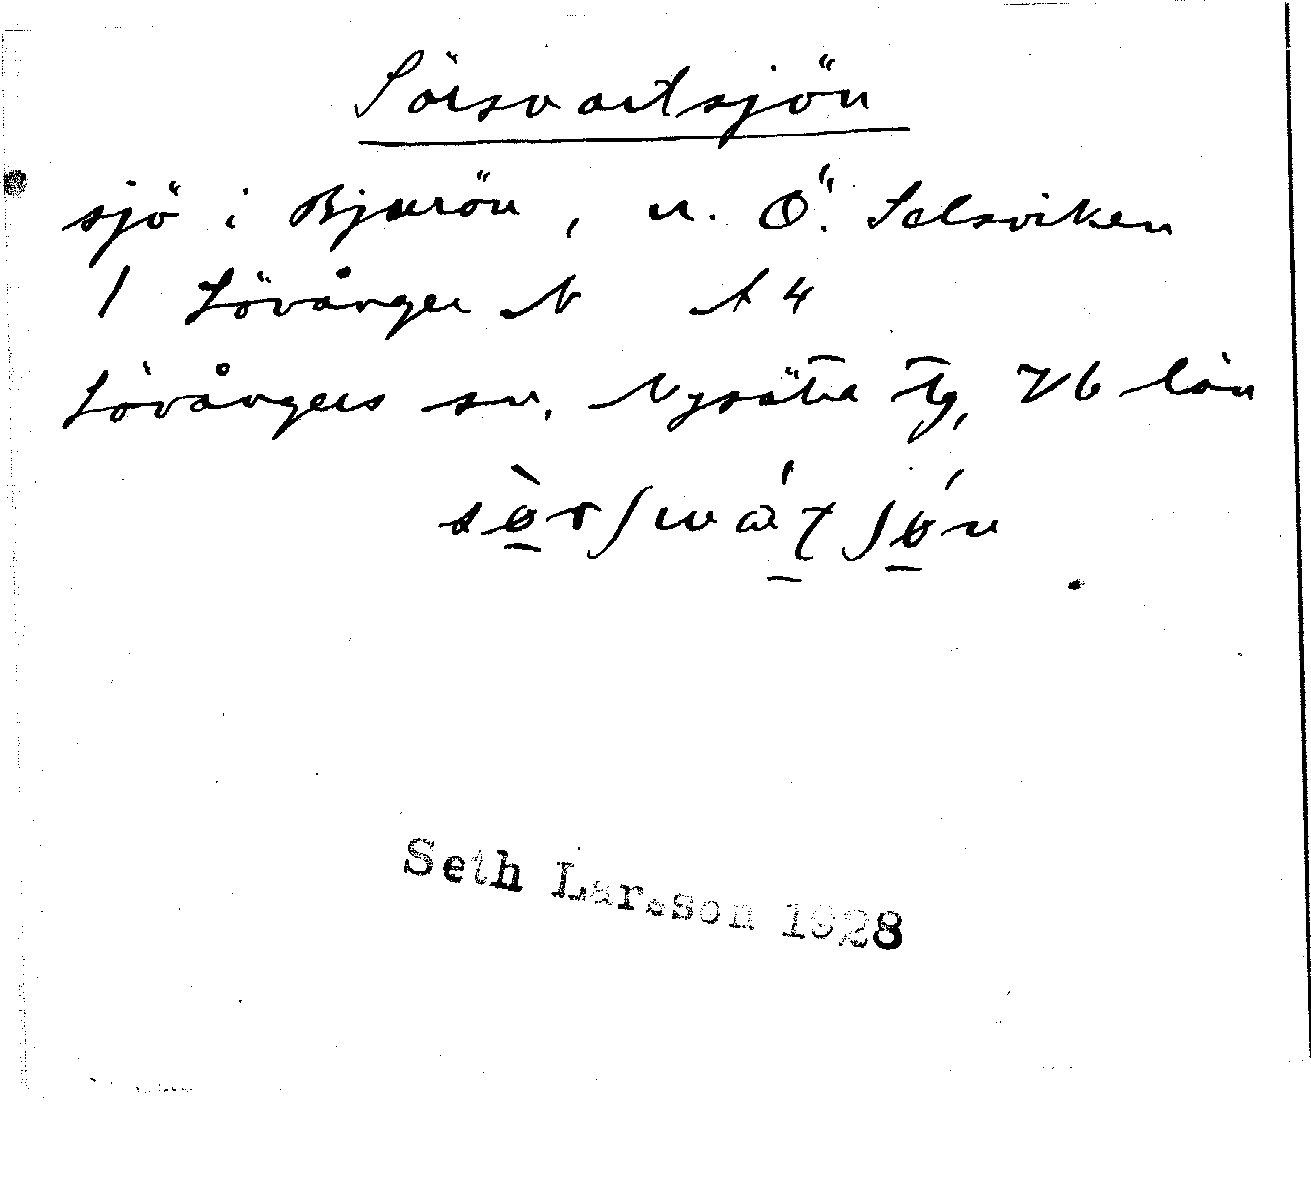 Sörsvartsjön
sjö i Bjurön, n. Ö. Salsviken
1 Lövånger N A 4
Lövångers sn, Nysätra tg, Vb län
Seth Larsson 1928